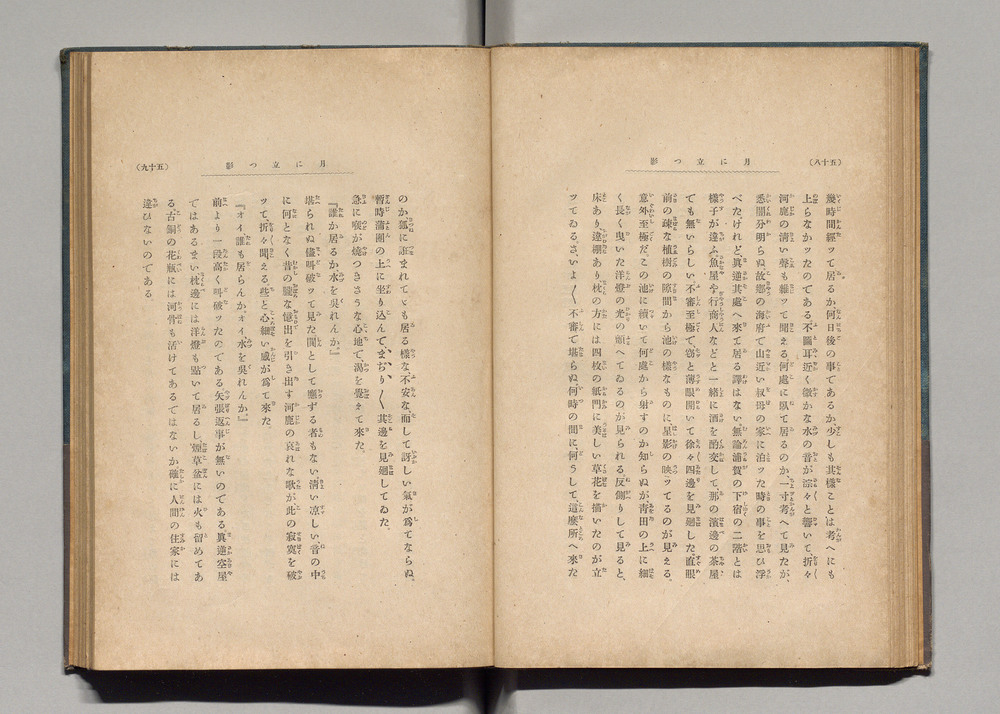 （五十八）
月に立つ影
幾時間經ッて居るか何日後の事であるか、少しも其樣ことは考へにも
上らなかッたのである不圖耳近く微かな水の音が淙々と響いて、折々
河鹿の清い聲も雜ッて聞える、何處に臥て居るのか、一寸考へて見たが、
悉皆分明らぬ故鄉の海府で山近い叔母の家に泊ッた時の事を思ひ浮
べたけれど、眞逆其處へ來て居る譯はない無論浦賀の下宿の二階とは
樣子が違ふ魚屋や行商人などと一緒に酒を酌交して、那の濱邊の茶屋
でも無いらしい不審至極で、竊と薄眼開いて徐々四邊を見廻した直眼
前の疎な植樹の隙間から池の樣なものに星影の映ッてるのが見える、
意外至極だ、この池に續いて何處から射すのか知らぬが、靑田の上に細
く長く曳いた洋燈の光の顫へてゐるのが見られる、反側りして見ると、
床あり、違棚あり枕の方には四枚の紙門に美しい草花を描いたのが立
ッてゐる、いよ〱不審で堪らぬ何時の間に何うして、這麼所へ來た
（五十九）
月に立つ影
のか狐に憑まれてゝも居る樣な、不安な、而して訝しい氣が爲てならぬ、
暫時蒲團の上に坐り込んで、まぢり〱其邊を見廻してゐた、
急に喉が燒つきさうな心地で、渴を覺えて來た、
『誰か居るか、水を吳れんか。』
堪られぬ儘叫破ッて見た閴として應ずる者もない清い凉しい、音の中
に何となく昔の朧な憶出を引き出す河鹿の哀れな歌が此の寂寞を破
ッて、折々聞える、些と心細い感が爲て來た、
『オイ誰も居らんか、オイ水を吳れんか。』
前より一段高く叫破ッたのである矢張返事が無いのである眞逆空屋
ではあるまい枕邊には洋燈も點いて居るし、煙草盆には火も留めてあ
る、古銅の花瓶には河骨も活けてあるではないか確に人間の住家には
違ひないのである、